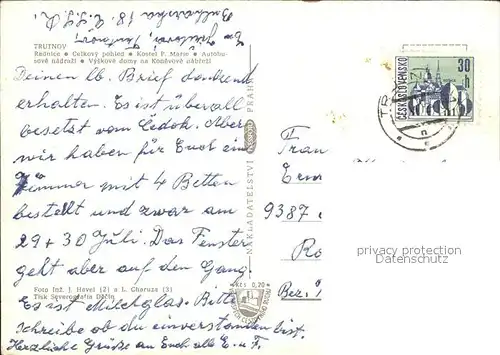 TRUTNOV
Radnice • Celkový pohled • Kostel P. Marie • Autobu-
sové nádraží • Výškové domy na Koněvově nábřeží
Deinen lb. Brief dankend
erhalten. Es ist überall
besetzt vom Čedok. Aber
wir haben für Euch ein
Zimmer mit 4 Betten
bestellt und zwar am
29 + 30 Juli. Das Fenster
geht aber auf den Gang
Es ist Milchglas. Bitte
Schreibe ob du einverstanden bist.
Herzliche Grüße an Euch alle E. u. F.
Foto Inž. J. Havel (2) a L. Charuza (3)
Tisk Severografia Děčín
NAKLADATELSTVÍ PRAHA
Kčs 0,20
ČESKOSLOVENSKO
30 h
Frau
9387
Bez.
privacy protection
Datenschutz